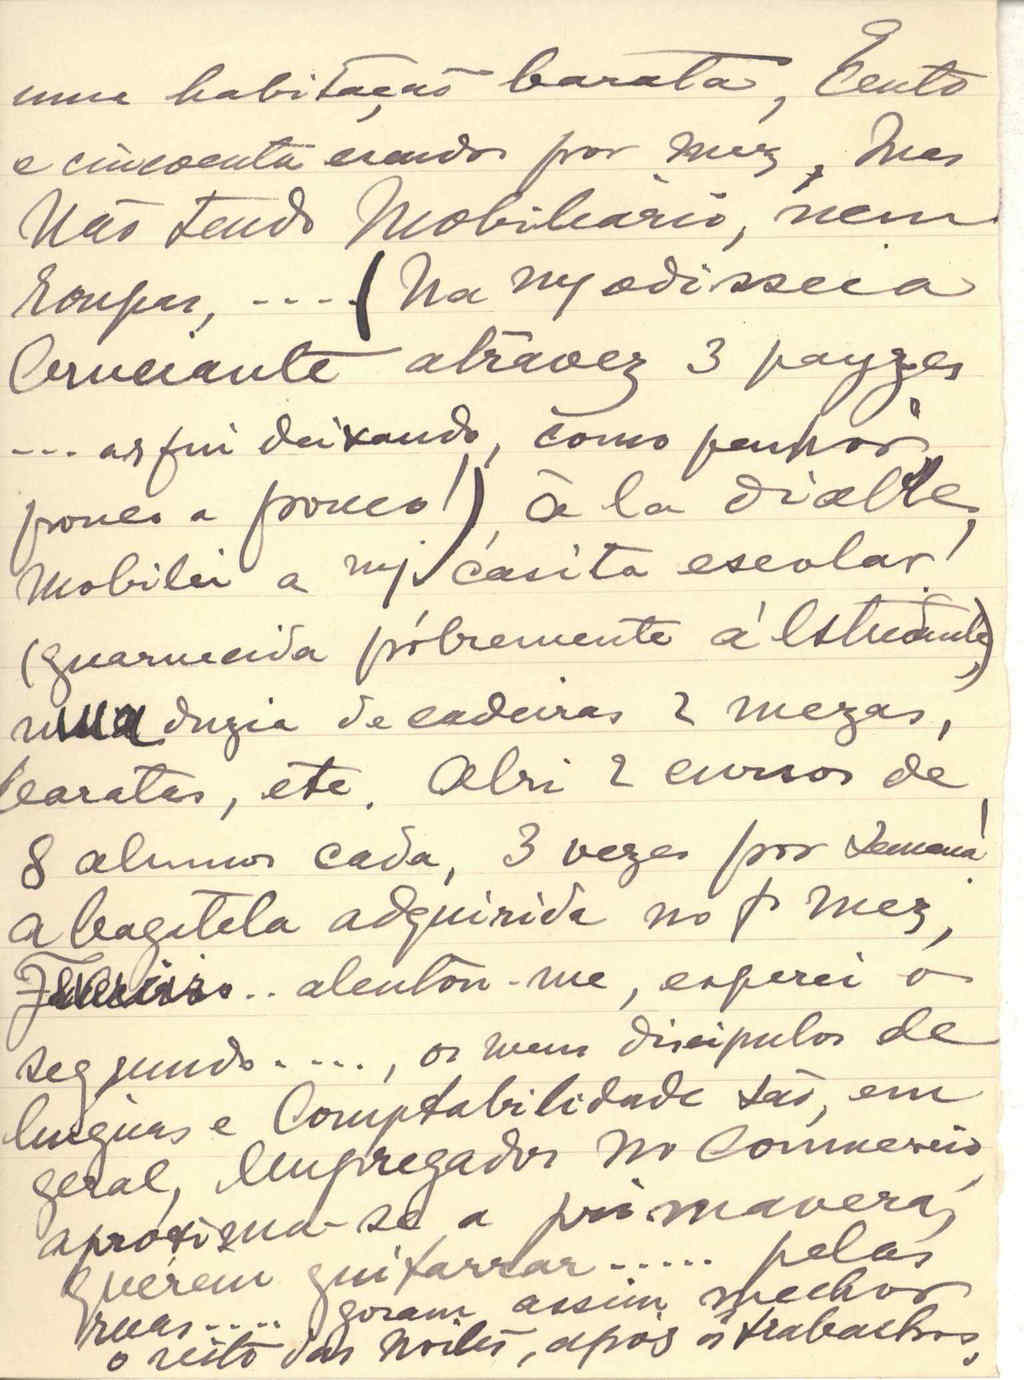 uma habitação barata, Cento
e cincoenta escudos por mez, Mas
Não tendo Mobiliario, nem
Roupas, ....(Na mª odisseia
Cruciante atravez 3 payzes
... as fui deixando, como penhor,
pouco a pouco!) à la diable,
Mobilei a mª casita escolar!
(guarnecida póbremente á Estudante,)
uma duzia de cadeiras 2 mezas,
baratas, etc. Abri 2 cursos de
8 alumos cada, 3 vezes por semana!
a bagatela adquirida no 1º mez,
Fevereiro.. alentou-me, esperei o
segundo...., os meus discipulos de
linguas e Comptabilidade são, em
geral, Empregados no Commercio,
aproxima-se a primavera,
Querem guitarrar..... pelas
ruas.... gosam assim melhor
o resto das Noites, após os trabalhos.